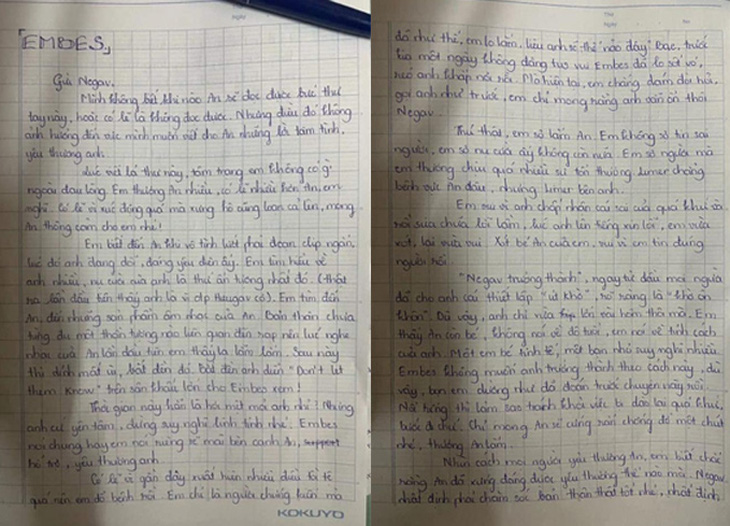 「EMBES」
Gửi Negav.
Mình không biết khi nào An sẽ đọc được bức thư
tay này, hoặc có lẽ là không đọc được. Nhưng điều đó không
ảnh hưởng đến việc mình muốn viết cho An những lời tâm tình,
yêu thương anh.
Lúc viết lá thư này, tâm trạng em không có gì
ngoài đau lòng. Em thương An nhiều, có lẽ nhiều hơn An, em
nghĩ. Có lẽ vì xúc động quá mà xưng hô cũng loạn cả lên, mong
An thông cảm cho em nhé!
Em biết đến An khi vô tình lướt phải đoạn clip ngắn,
lúc đó anh đang dỗi, đáng yêu điên ấy. Em tìm hiểu về
anh nhiều, nụ cười của anh là thứ ấn tượng nhất đó. (thật
ra lần đầu tiên thấy anh là vì clip thuygav cơ). Em tìm đến
An, đến những sản phẩm âm nhạc của An. Bản thân chưa
từng đu một thần tượng nào liên quan đến rap nên lúc nghe
nhạc của An lần đầu tiên em thấy lạ lắm lắm. Sau này
thì dính mất rồi, bắt đền đó. Bắt đền anh diễn "Don't let
them know" trên sân khấu lớn cho Embes xem!
Thời gian này hẳn là hơi mệt mỏi anh nhỉ? Nhưng
anh cứ yên tâm, đừng suy nghĩ linh tinh nhé. Embes
nói chung hay em nói riêng sẽ mãi bên cạnh An,
hỗ trợ, yêu thương anh.
Có lẽ vì gần đây xuất hiện nhiều điều tồi tệ
quá nên em đã bệnh rồi. Em chỉ là người chứng kiến mà
KOKUYO
đã như thế, em lo lắm, liệu anh sẽ thế nào đây? Rạc, trước
kia một ngày không đăng tus vui Embes đã lo sốt vó,
réo anh khắp nơi rồi. Mà hiện tại, em chẳng dám đòi hỏi,
gọi anh như trước, em chỉ mong rằng anh vẫn ổn thôi
Negav.
Thú thật, em sợ lắm An. Em không sợ tin sai
người, em sợ nụ cười ấy không còn nữa. Em sợ người mà
em thương chịu quá nhiều sự tổn thương. Umer chẳng
bênh vực An đâu, nhưng Umer bên anh.
Em vui vì anh chấp nhận cái sai của quá khứ và
rồi sửa chữa lỗi lầm, lúc anh lên tiếng xin lỗi, em vừa
xót, lại vừa vui. Xót bé An của em, vui vì em tin đúng
người rồi.
"Negav trưởng thành", ngay từ đầu mọi người
đã cho anh cái thiết lập
khăn". Dù vậy, anh chỉ vừa lớn hơn thôi mà. Em
thấy An còn bé, không nói về độ tuổi, em nói về tính cách
của anh. Một em bé tinh tế, một bạn nhỏ suy nghĩ nhiều.
Embes không muốn anh trưởng thành theo cách này, dù
vậy, bọn em dường như đã đoán trước chuyện này rồi.
Nổi tiếng thì làm sao tránh khỏi việc bị đào lại quá khứ,
bước đi chứ. Chỉ mong An sẽ cứng rắn chống đỡ một chút
nhé, thương An lắm.
Nhìn cách mọi người yêu thương An, em biết chắc
rằng An đã xứng đáng được yêu thương thế nào mà. Negav
nhất định phải chăm sóc bản thân thật tốt nhé, nhất định